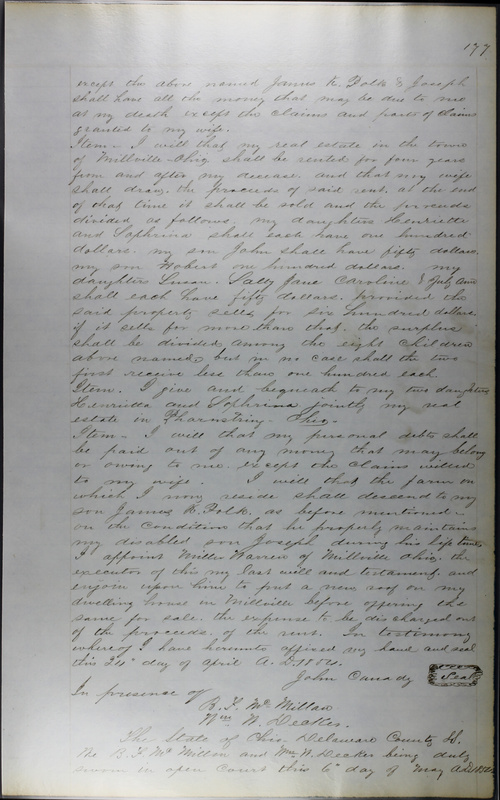 177
except the above named James K. Polk & Joseph
shall have all the money that may be due to me
at my death except the claims and parts of claims
granted to my wife.
Item - I will that my real estate in the town
of Millville Ohio shall be rented for four years
from and after my decease. and that my wife
shall draw the proceeds of said rent. at the end
of that time it shall be sold and the proceeds
divided as follows. my daughters Henrietta
and Sophrina shall each have one hundred
dollars. my son John shall have fifty dollars.
my son Robert one hundred dollars. my
daughter Susan. Sally Jane Caroline & July Ann
shall each have fifty dollars. provided the
said property sells for six hundred dollars
if it sells for more than that. the surplus
shall be divided among the eight children
above named, but in no case shall the two
first receive less than one hundred each
Item. I give and bequeath to my two daughters
Henrietta and Sophrina jointly my real
estate in Ohio.
Item - I will that my personal debts shall
be paid out of any money that may belong
or owing to me. except the claims willed
to my wife. I will that the farm on
which I now reside shall descend to my
son James K. Polk. as before mentioned -
on the condition that he properly maintains
my disabled son Joseph during his life time
I appoint Warren of Millville Ohio. the
executor of this my last will and testament. and
enjoin upon him to put a new roof on my
dwelling house in Millville before offering the
same for sale. the expense to be discharged out
of the proceeds of the rent. In testimony
whereof I have hereunto affixed my hand and seal
this 24" day of april A. D. 1854.
John Canady Seal
In presence of
B. F. McMillan
Wm W. Deaker.
The State of Ohio Delaware County SS.
The B. F. McMillan and Wm W. Deaker being duly
sworn in open Court this 6" day of May AD